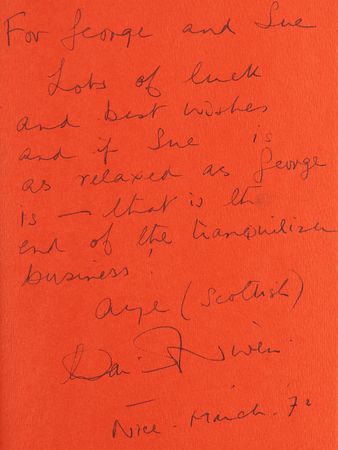 For George and Sue
Lots of luck
and best wishes
and if Sue is
as relaxed as George
is — that is the
end of the tranquilizer
business!
Aye (Scottish)
David Niven
Nice. March. 72